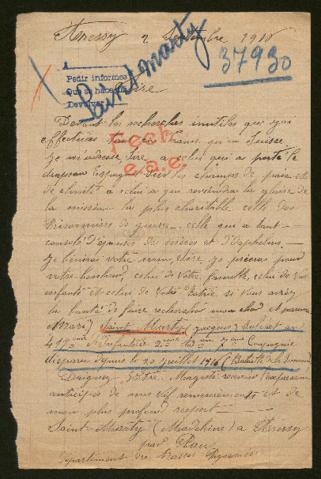 2 Septembre 1916
37930
Saint Marty
Pedir informes
Que se haces
Devolver
Sire
Devant les recherches inutiles que j'ai
effectuées tant en France qu'en Suisse
je m'adresse, Sire, à celui qui a porté le
drapeau dans les champs de paix et
de charité à celui a qui reviendra la gloire de
la mission la plus charitable celle des
Prisonniers de guerre celle qui a tant
consolé d'épouses de mères et d'orphelins.
Fech
e.a.e.
Je bénirai votre mémoire, je prierai pour
votre bonheur, celui de votre famille, celui de vos
enfants et celui de votre Patrie si vous avez
la bonté de faire rechercher mon cher et pauvre
Mari Saint Marty Jacques Soldat au
49me d'Infanterie 2me Bon Compagnie
disparu depuis le 20 Juillet 1916 (Bataille de la Somme)
Daignez Votre Majesté recevoir l'expression
anticipée de mes vifs remerciements et de
mon plus profond respect
Saint-Marty (Madeleine) à
par Pau
département des Basses Pyrénées